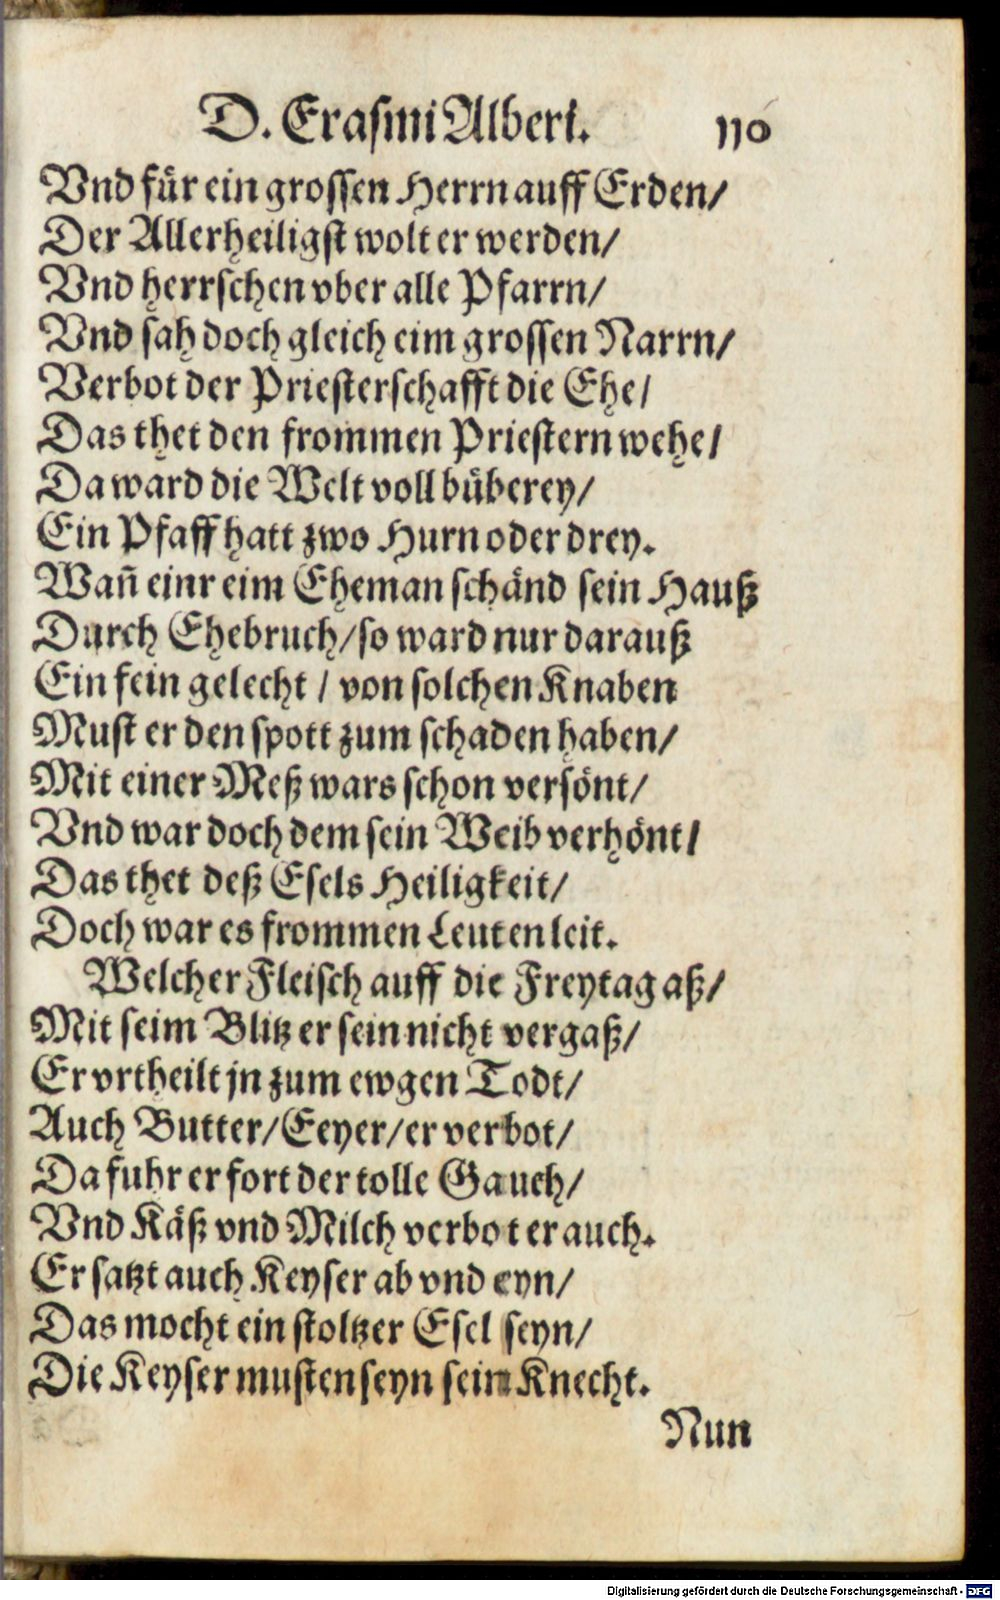 D. Erasmi Alberi. 110
Vnd für ein grossen Herrn auff Erden/
Der Allerheiligst wolt er werden/
Vnd herrschen vber alle Pfarrn/
Vnd sah doch gleich eim grossen Narrn/
Verbot der Priesterschafft die Ehe/
Das thet den frommen Priestern wehe/
Da ward die Welt voll büberey/
Ein Pfaff hatt zwo Hurn oder drey.
Wañ einr eim Eheman schänd sein Hauß
Durch Ehebruch/ so ward nur darauß
Ein fein gelecht / von solchen Knaben
Must er den spott zum schaden haben/
Mit einer Meß wars schon versönt/
Vnd war doch dem sein Weib verhönt/
Das thet deß Esels Heiligkeit/
Doch war es frommen Leuten leit.
Welcher Fleisch auff die Freytag aß/
Mit seim Blitz er sein nicht vergaß/
Er vrtheilt jn zum ewgen Todt/
Auch Butter/ Eeyer/ er verbot/
Da fuhr er fort der tolle Gauch/
Vnd Käß vnd Milch verbot er auch.
Er satzt auch Keyser ab vnd eyn/
Das mocht ein stoltzer Esel seyn/
Die Keyser musten seyn sein Knecht.
Nun
Digitalisierung gefördert durch die Deutsche Forschungsgemeinschaft - DFG